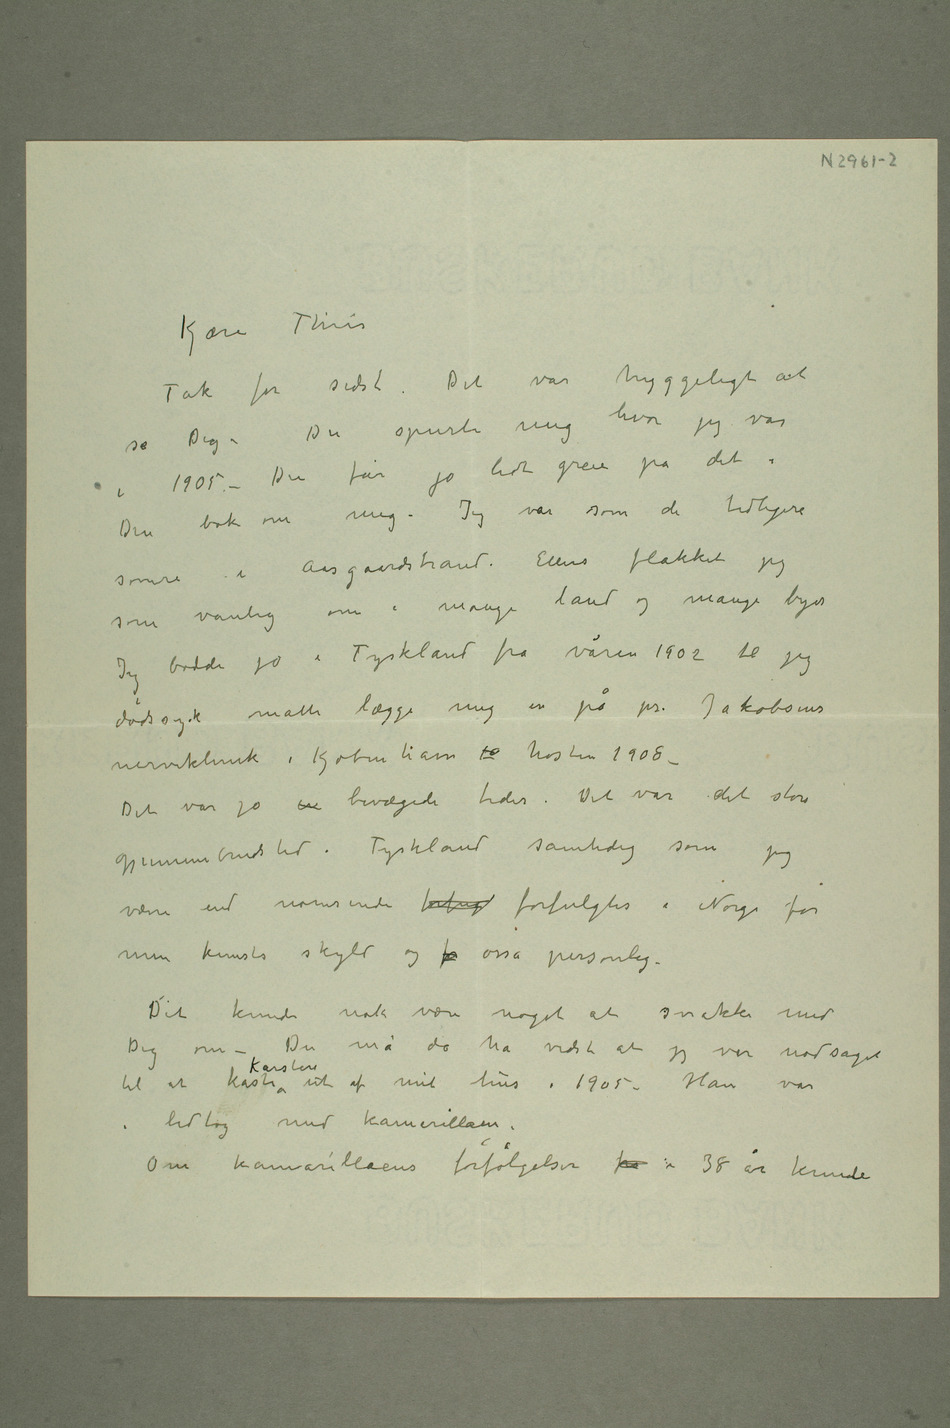 N 2961-2
Kjære Thiis
Tak for sidst. Det var hyggeligt at
se Dig – Du spurte mig hvor jeg var
i 1905. – Du får jo lidt greie på det i
Din bok om mig – Jeg var som de tidligere
somre i Aasgaardstrand. Ellers flakket jeg
som vanlig om i mange land og mange byer
Jeg bodde jo i Tyskland fra våren 1902 til jeg
dødssyk måtte lægge mig in på pr. Jakobsens
nerveklinik i Kjøbenhavn til høsten 1908 –
Det var jo en bevægede tider. Det var det store
gjennembrudstid i Tyskland samtidig som jeg
værre end nonsinde forfulgt forfulgtes i Norge for
min kunsts skyld og for også personlig –
Dit kunde nok være noget at snakke med
Dig om – Du må da ha vidst at jeg var nødsaget
til at kaste Karsten ut af mit hus i 1905 – Han var
i ledtog med kamarillaen.
Om kamarillaens forfølgelser fra i 38 år kunde